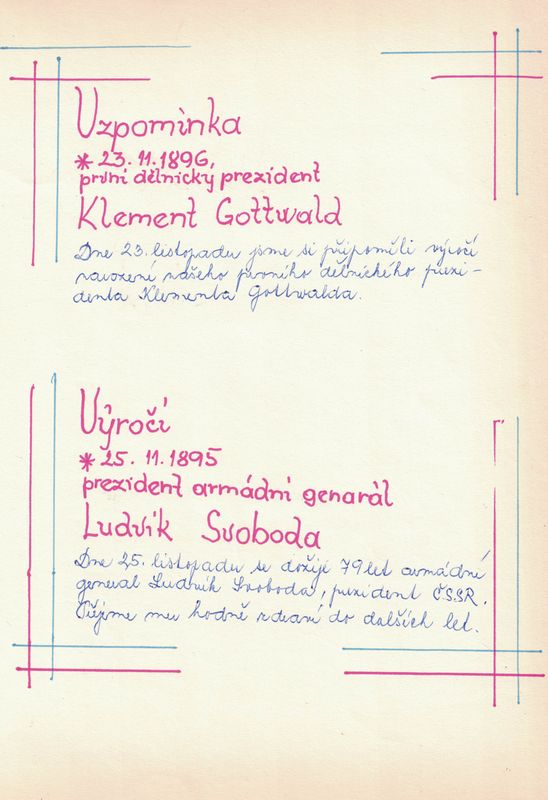 Uzpomínka
* 23.11.1896,
první dělnický prezident
Klement Gottwald
Dne 23. listopadu jsme si připoměli výročí
narození našeho prvního dělnického prezi-
denta Klementa Gottwalda.
Výročí
* 25. 11. 1895
prezident armádní genarál
Ludvík Svoboda
Dne 25. listopadu se dožije 79 let armádní
generál Ludvík Svoboda, prezident ČSSR.
Přejeme mu hodně zdraví do dalších let.